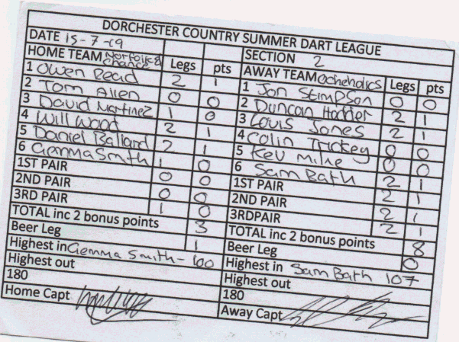 DORCHESTER COUNTRY SUMMER DART LEAGUE
DATE 15-7-19 SECTION 2
HOME TEAM Norfolk & Chance Legs pts AWAY TEAM Ocheholics Legs pts
1 Owen Read 2 1 1 Jon Stimpson 0 0
2 Tom Allen 0 0 2 Duncan Hodder 2 1
3 David Martinez 1 0 3 Louis Jones 2 1
4 Will Wood 2 1 4 Colin Trickey 0 0
5 Daniel Ballard 2 1 5 Kev Milne 0 0
6 Gemma Smith 1 0 6 Sam Bath 2 1
1ST PAIR 0 0 1ST PAIR 2 1
2ND PAIR 0 0 2ND PAIR 2 1
3RD PAIR 1 0 3RDPAIR 2 1
TOTAL inc 2 bonus points 3 TOTAL inc 2 bonus points 8
Beer Leg 1 Beer Leg 0
Highest in Gemma Smith - 100 Highest in Sam Bath 107
Highest out Highest out
180 180
Home Capt Away Capt